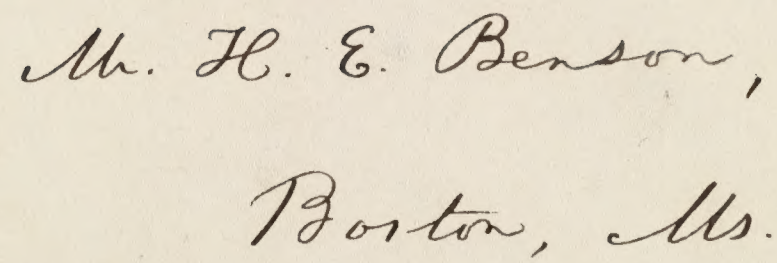 Mr. H. E. Benson,
Boston, Ms.